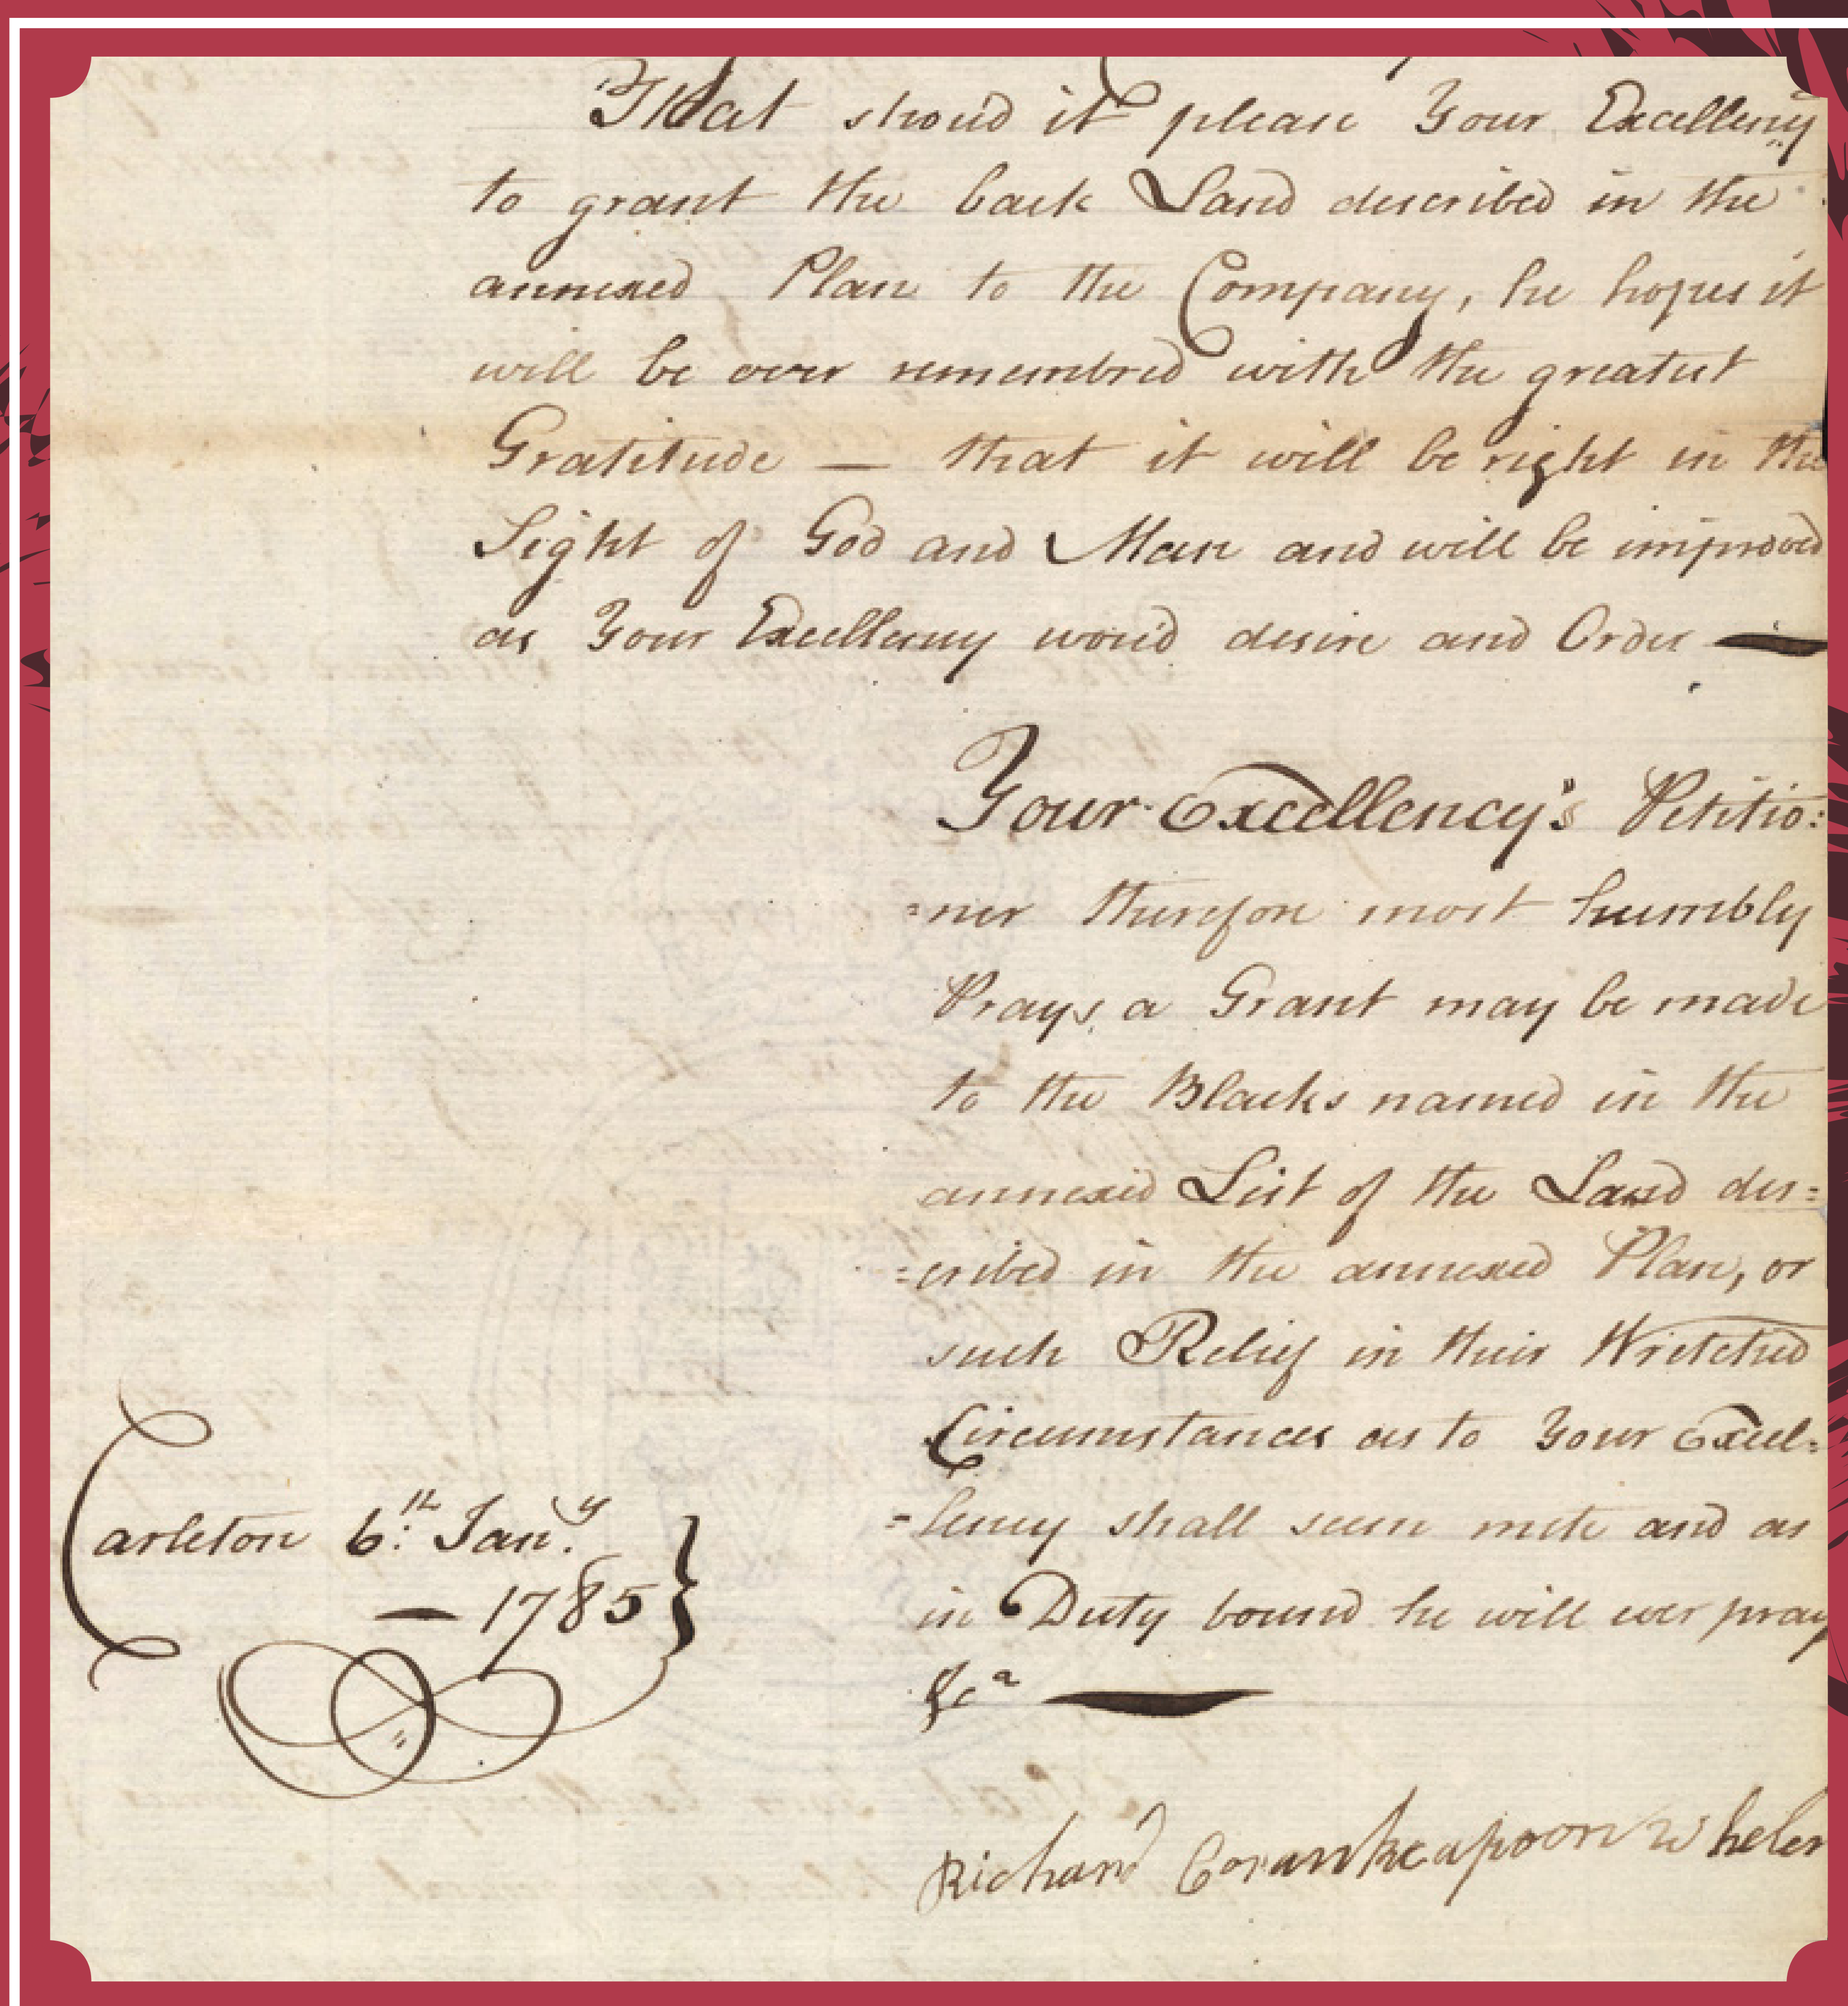 That shoud it please Your Excellency
to grant the back Land described in the
annexed Plan to the Company, he hopes it
will be ever remembred with the greatest
Gratitude — that it will be right in the
Sight of God and Man and will be improved
as Your Excellency woud desire and Order —
Your Excellency's Petitio:
=ner therefore most humbly
Prays, a Grant may be made
to the Blacks named in the
annexed List of the Land des=
=cribed in the annexed Plan, or
such Relief in their Wretched
Circumstances as to Your Excel=
=lency shall seem mete and as
in Duty bound he will ever pray
&cª —
Carleton 6th Jany
— 1785
Richard Corankeapoon Wheler